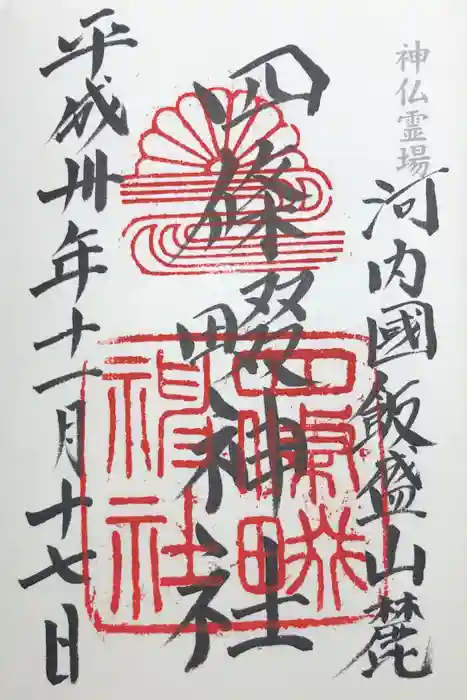 神仏霊場
河内國飯盛山麓
四條畷神社
四條畷神社
平成卅年十一月十七日